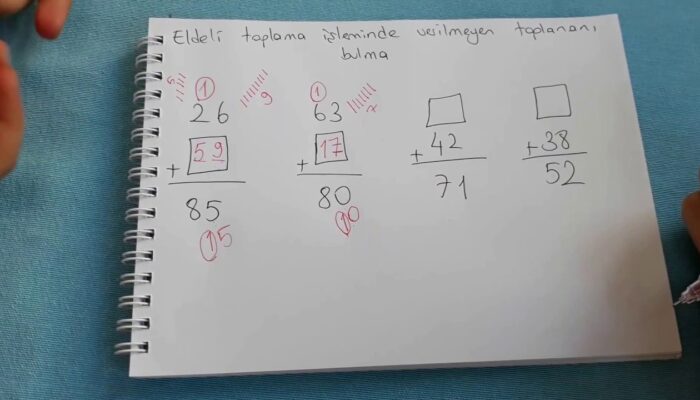 Eldeli toplama işleminde verilmeyen toplananı
bulma
5 1 9 1 7
26 63
+ 59 + 17 + 42 + 38
85 80 71 52
15 10